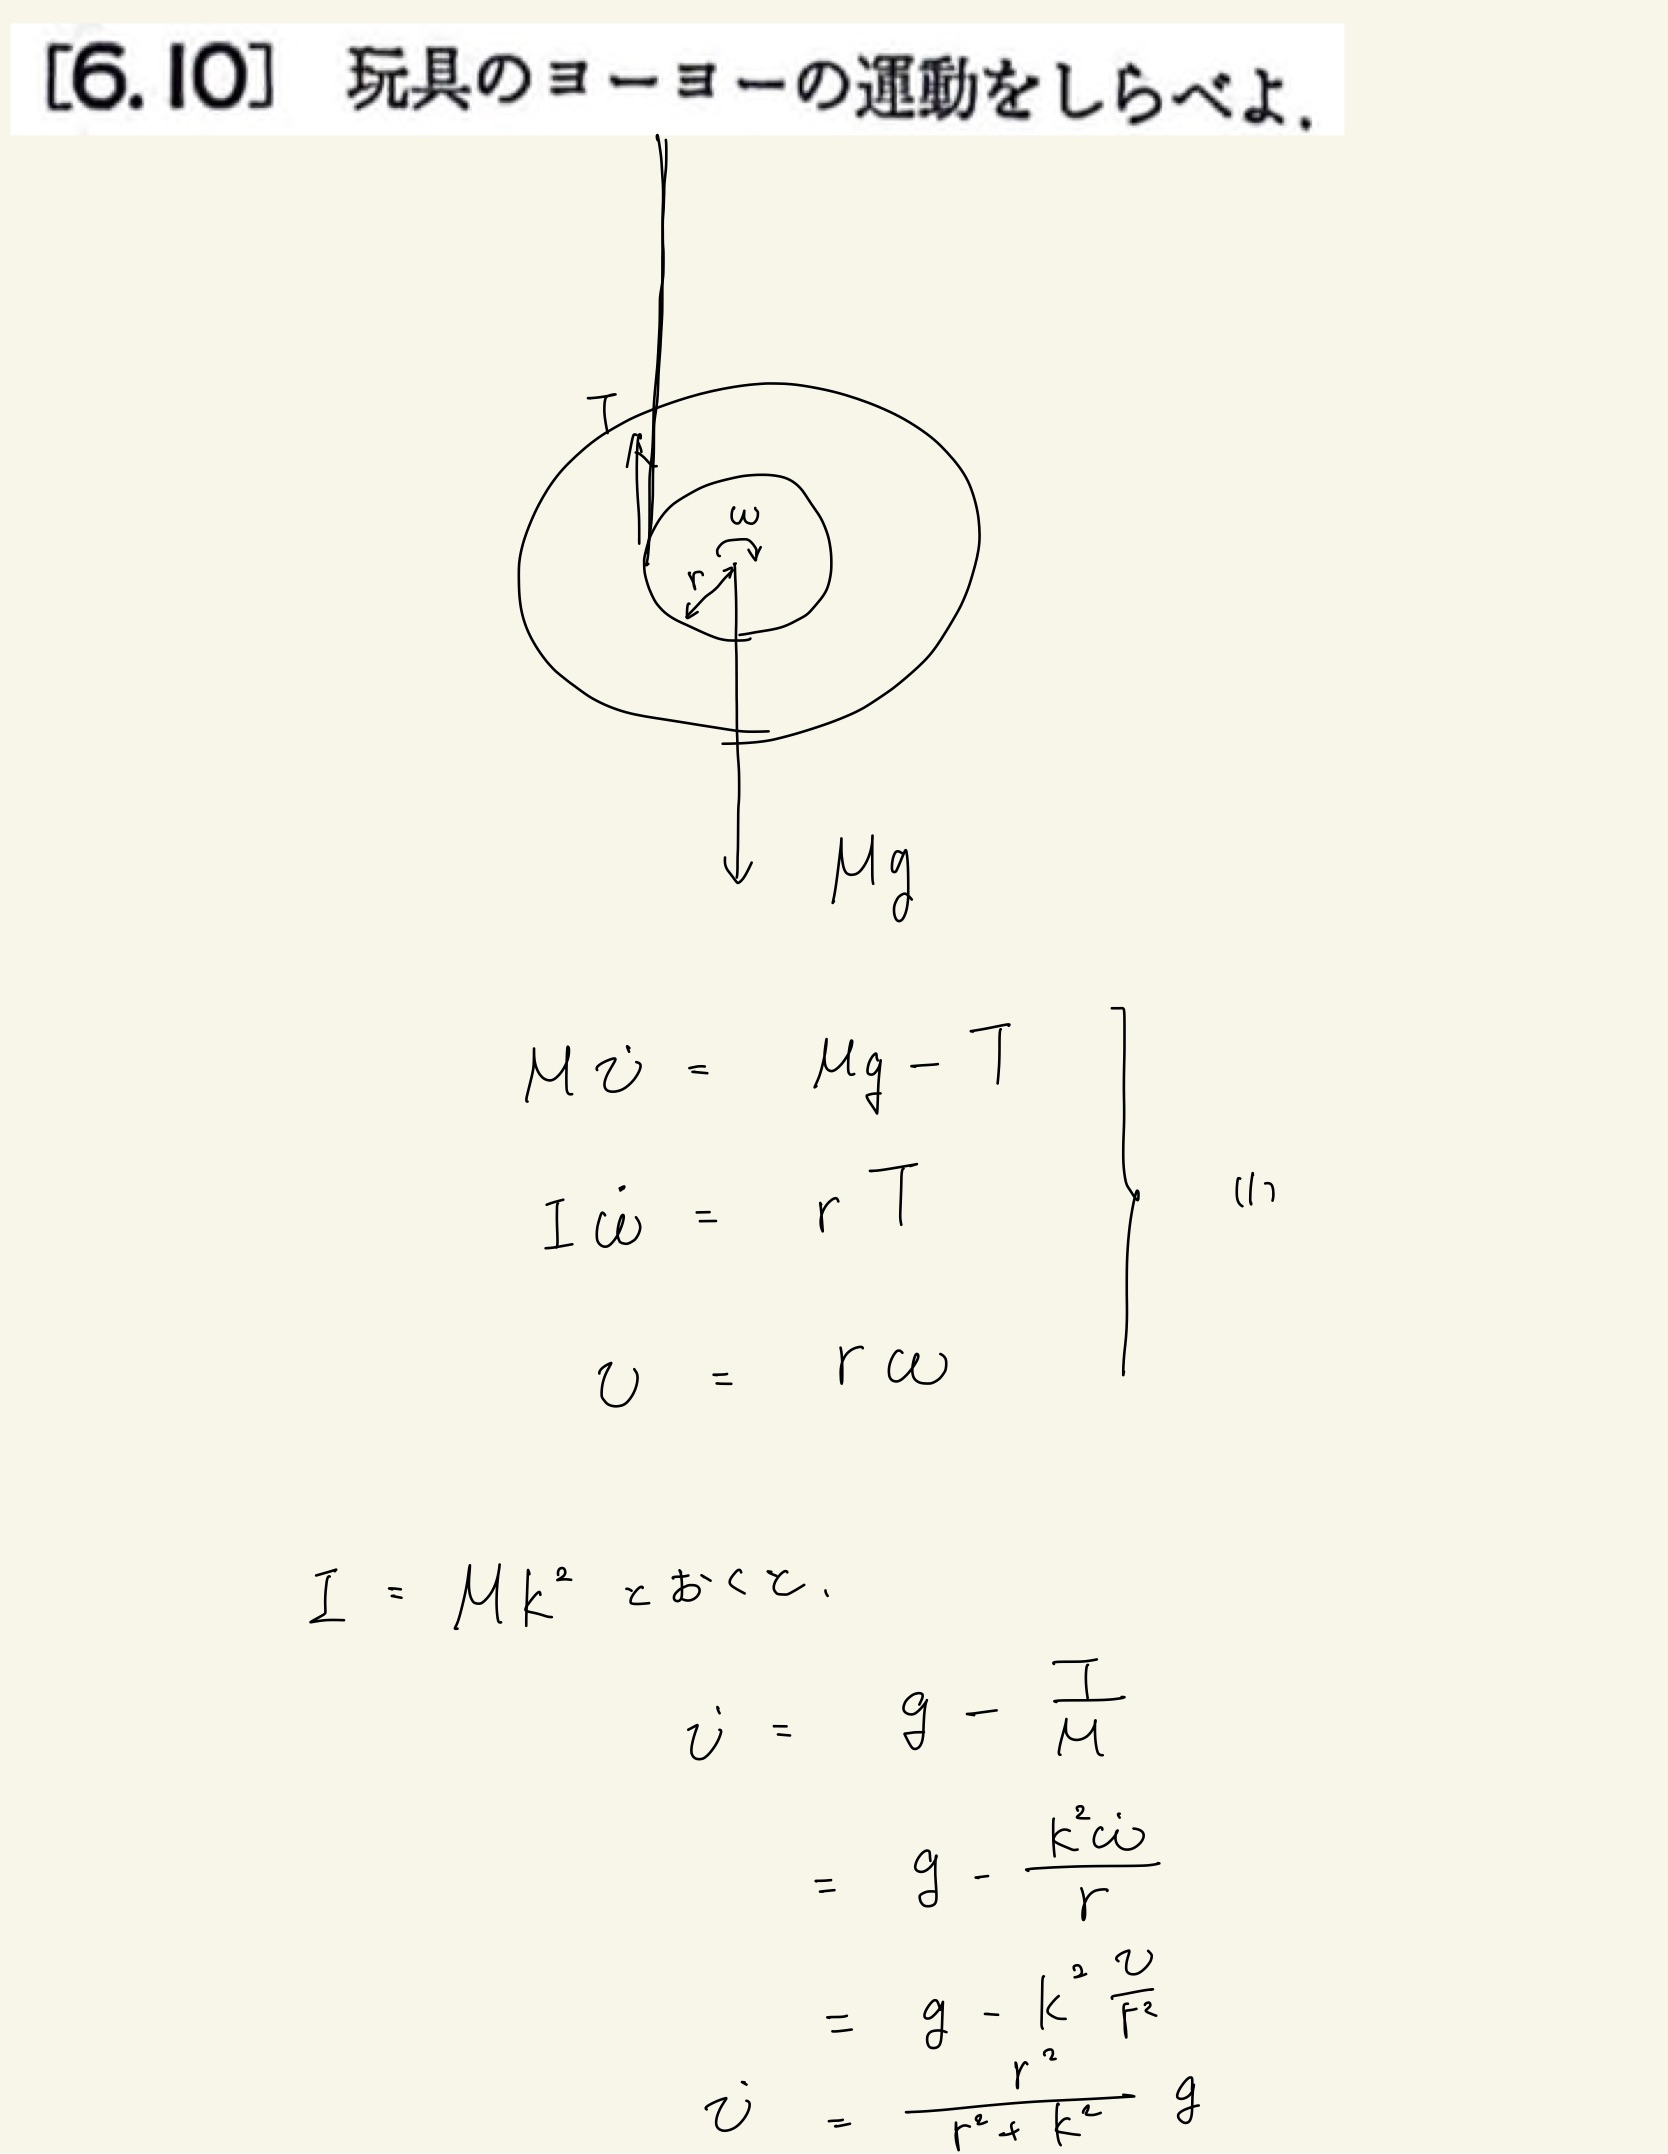 [6.10] 玩具のヨーヨーの運動をしらべよ.
T
ω
r
Mg
Mv̇ = Mg - T
Iω̇ = rT
(1)
v = rω
I = Mk² とおくと、
v̇ = g - T/M
= g - k²ω̇/r
= g - k² v/r²
v̇ = r²/(r² + k²) g